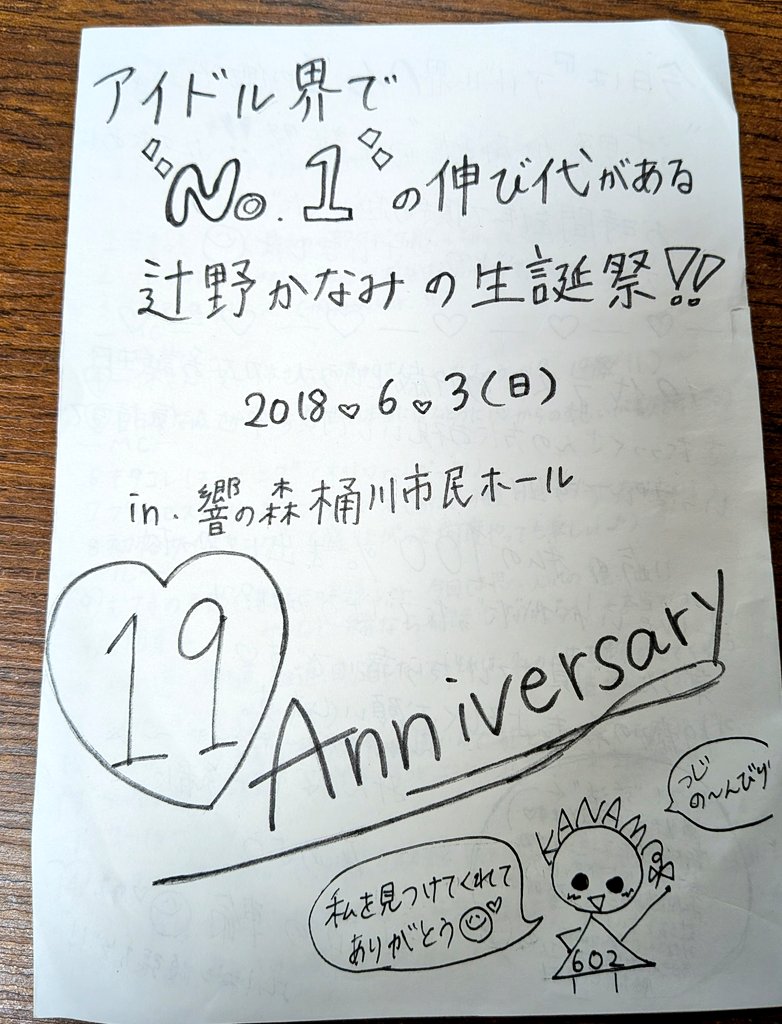 アイドル界で
No.1の伸び代がある
辻野かなみの生誕祭!!
2018♡6♡3(日)
in.響の森桶川市民ホール
19
Anniversary
つじ
の〜んびり
KANAMI
私を見つけてくれて
ありがとう
602